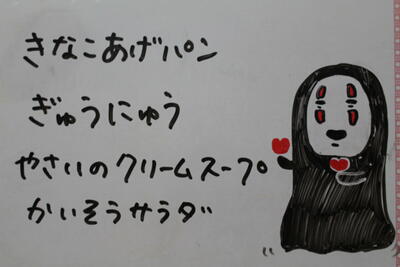 きなこあげパン
ぎゅうにゅう
やさいのクリームスープ
かいそうサラダ